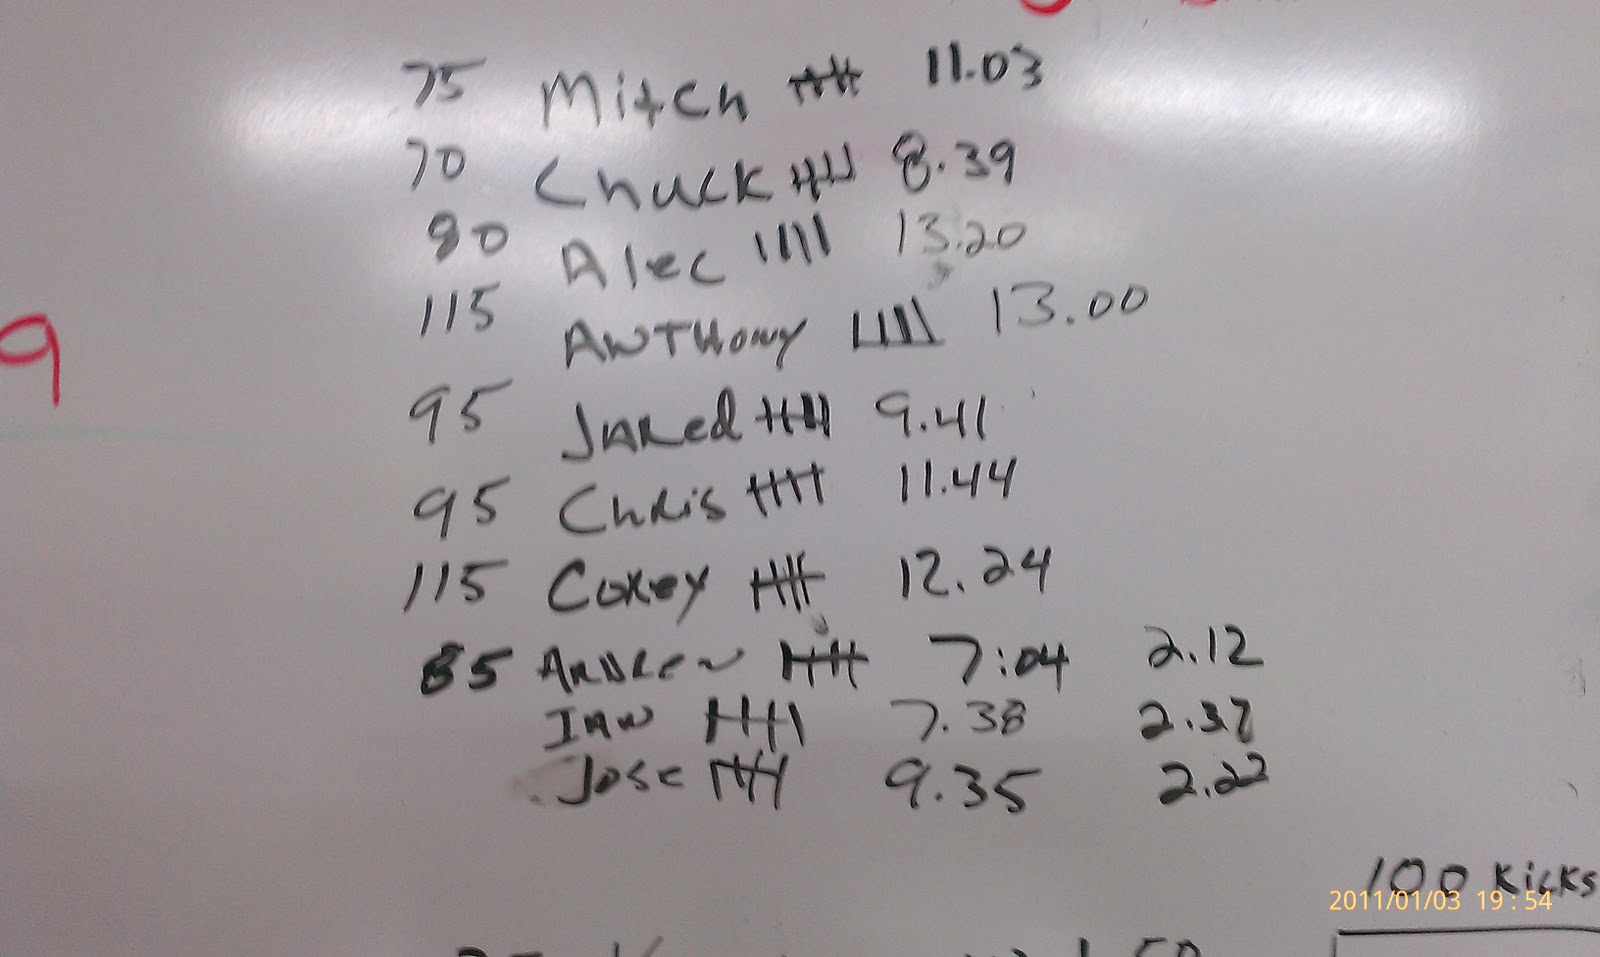 75 Mitch 11.03
70 Chuck 8.39
80 Alec 13.20
115 ANTHony 13.00
95 JARed 9.41
95 ChRis 11.44
115 CoRey 12.24
85 ANDREW 7:04 2.12
IAN 7.38 2.37
Jose 9.35 2.22
9
100 Kicks
2011/01/03 19:54